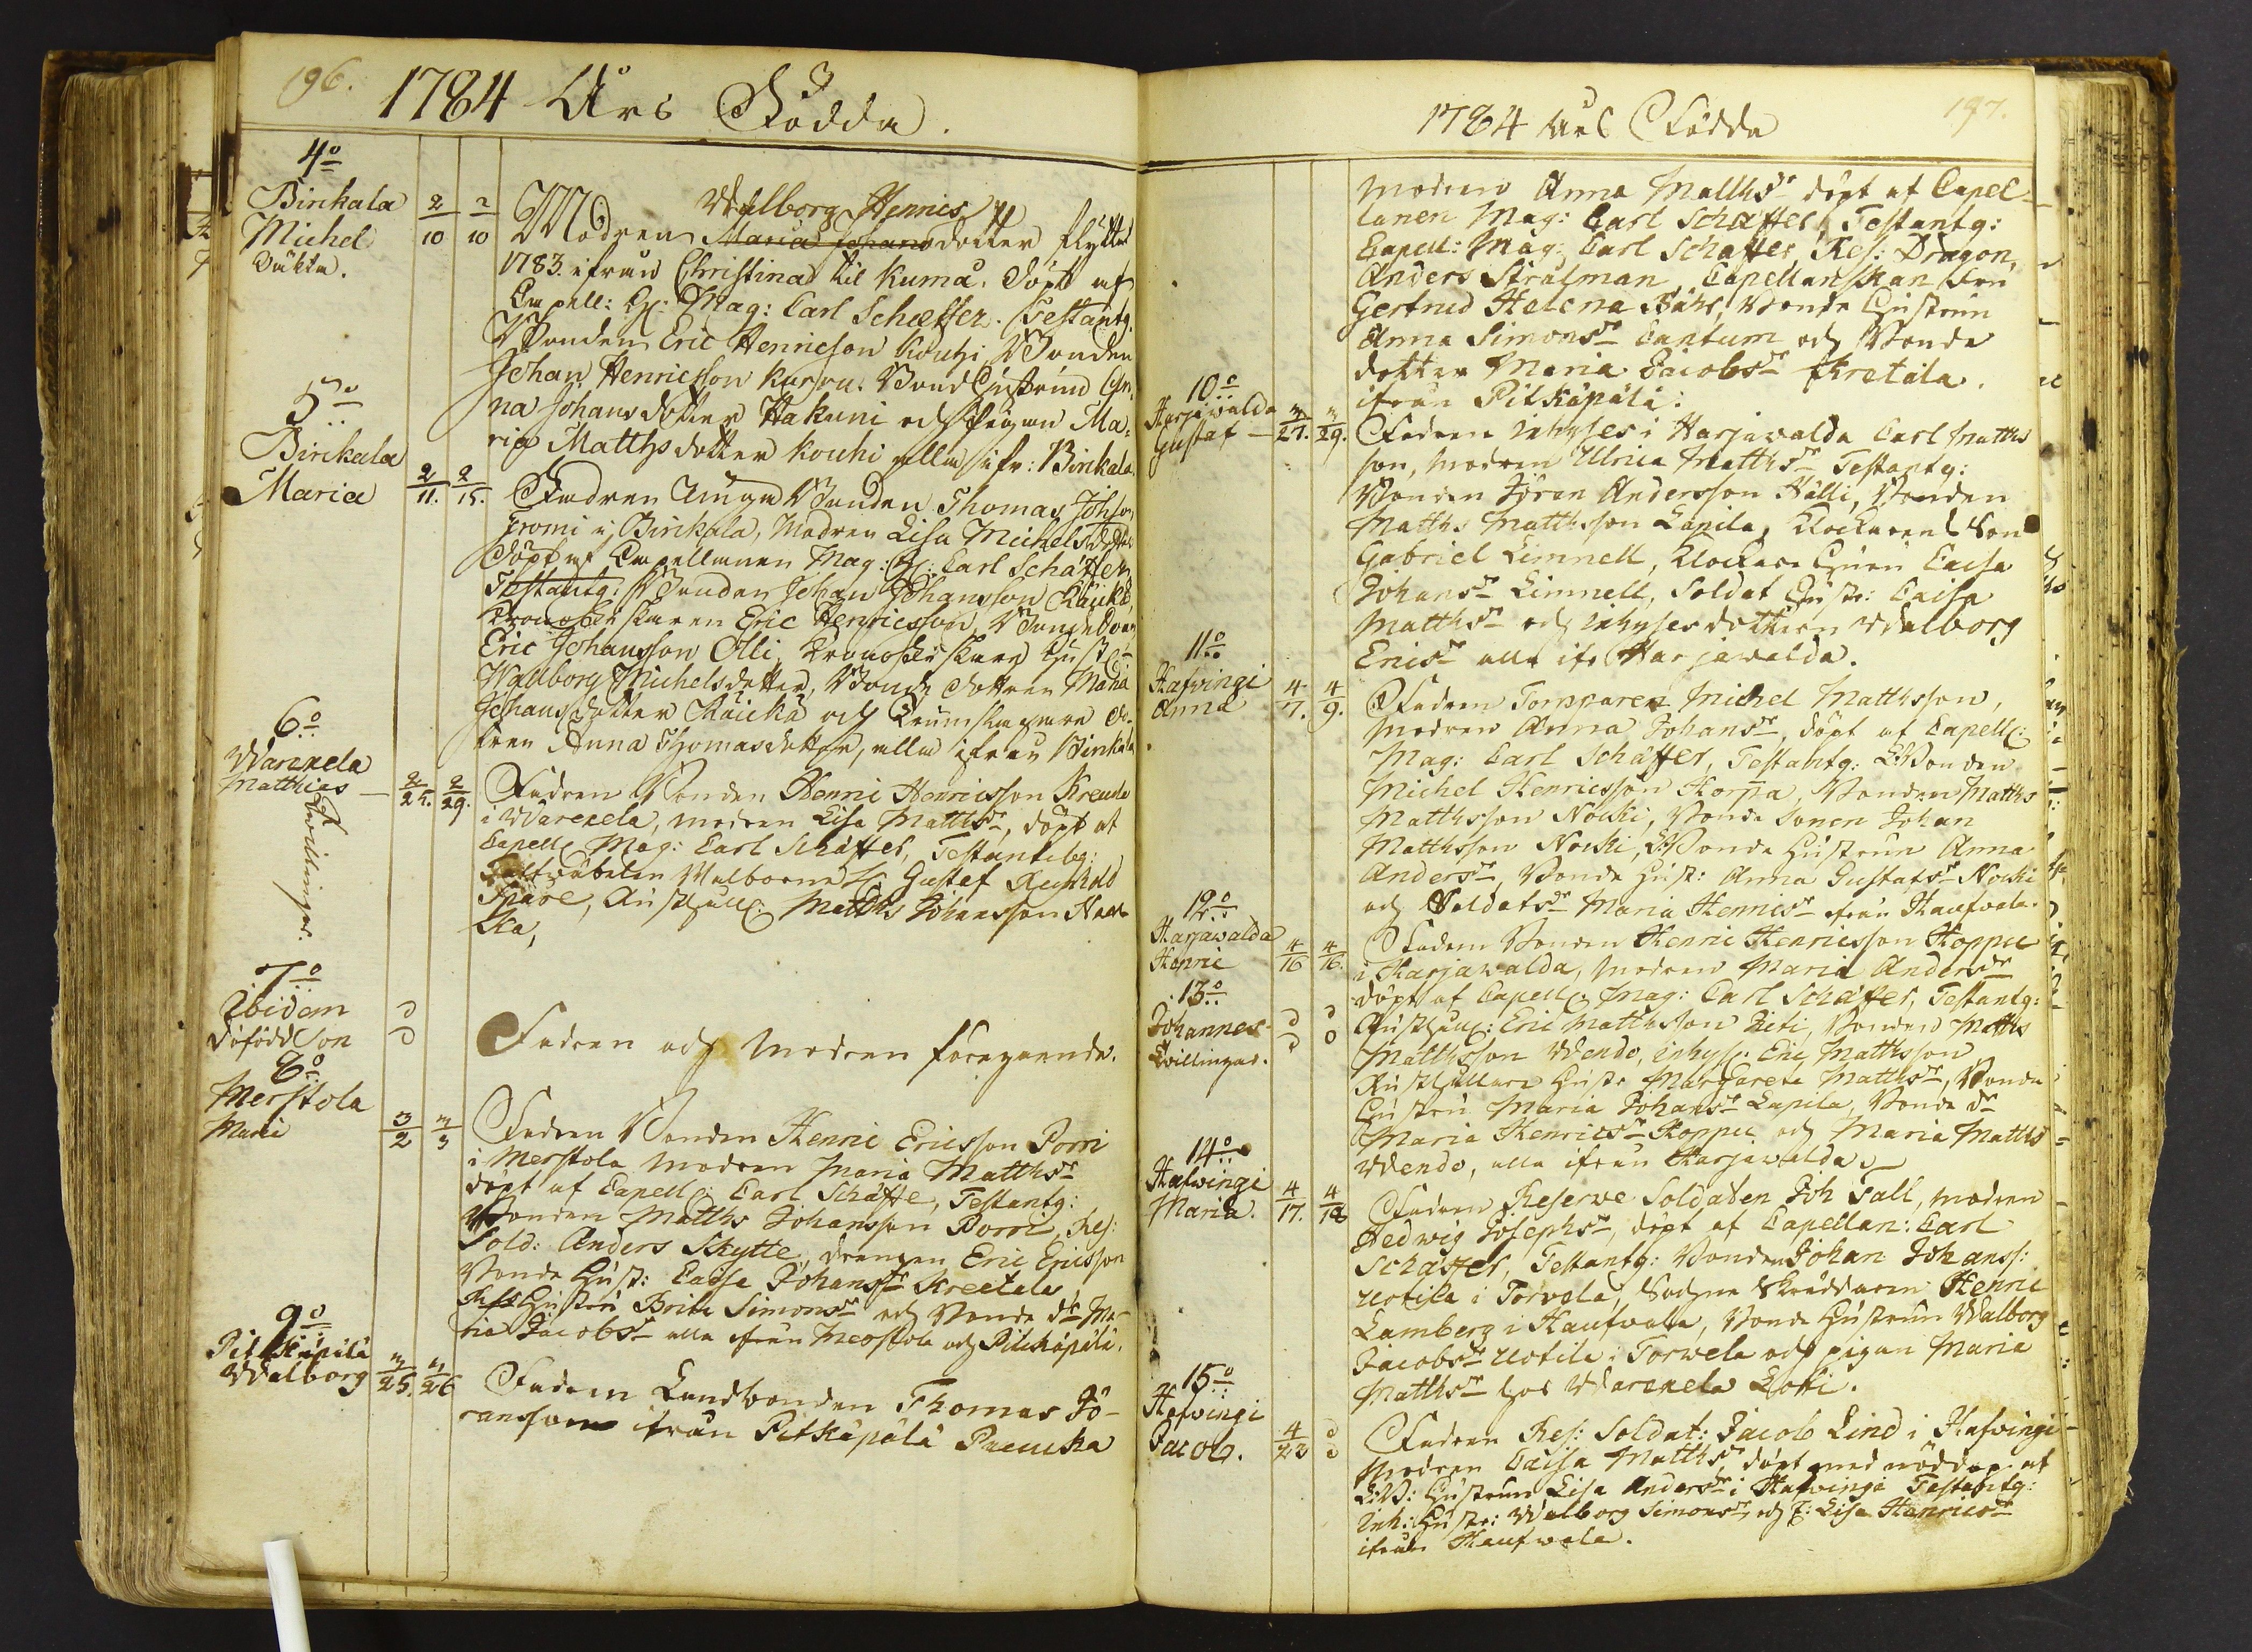 196.
1784 Års Födda.
4o
Birikala
Michel
oäkta.
2/10 2/10
Walborg Henrics
Modren Maria Johansdotter flytt
1783 ifrån Christina til Kumå. Döpt af
Capell: H: Mag: Carl Schæffer. Testantg.
Bonden Eric Henricson Kouhi, Bonden
Johan Henricsson Bond Hustrun An-
na Johansdotter Hakuni och Pigan Ma-
ria Matthsdotter Kouhi alla ifr: Birikala.
5o
Birikala
Maria
2/11. 2/15.
Fadren Unga Bonden Thomas Johsson
Fromi i Birikala, Modren Lisa Michelsdotter
Döpt af Capellanen Mag: H: Carl Schäffer,
Testantg: Bonden Johan Johansson Räickä,
Eric Henricsson, Bondesonen
Eric Johansson Olli, Hust:
Walborg Michelsdotter, Bonde dottren Maria
Johansdotter Räickä och
tren Anna Thomasdotter, alla ifrån Birikala
6o
Warenela
Matthias
Tvillingar.
2/25. 2/29.
Fadren Bonden Henric Henricsson Kreula
i Warenela, modren Lisa Matthsdr, döpt af
Capell: Mag: Carl Schäffer, Testantibg:
Fältwäbelen Välborne H: Gustaf Reinhold
Spåre, Rusthåll: Matths Johansson Hau-
ka,
7o
Ibidem
döfödd Son
Fadren och Modren föregående.
8o
Merstola
Marie
3/2 3/3
Fadren Bonden Henric Ericsson Porri
i Merstola Modren Maria Matthsdr
döpt af Capell: Carl Schäffe, Testantg:
Bonden Matths Johansson Porri, Res:
Sold: Anders Skytte, drengen Eric Ericsson
Bonde Hust: Caisa Johansdr Kreetala
Hustru Brita Simonsdr och Bonde dr Ma-
ria Jacobsdr alla ifrån Merstola och Pitkäpälä.
9o
Pitkäpälä
Walborg
3/25. 3/26
Fadren Landbonden Thomas Jö-
ransson ifrån Pitkäpälä Pacucka
1784 Års Födda
197.
modren Anna Matthsdr döpt af Capel-
lanen Mag: Carl Schäffer, Testantg:
Capell: Mag: Carl Schäffer, Res: Dragon,
Anders Strålman, Capellanskan Fru
Gertrud Helena Bähr, Bonde Hustrun
Anna Simonsdr Cantum och Bonde
dotter Maria Jacobsdr Kretala.
ifrån Pitkäpälä:
10o
Harjawalda
Gustaf
3/27. 3/29.
Fadren Inhyses i Harjavalda Carl Matths
son, modren Ulrica Matthsdr Testantg:
Bonden Jöran Andersson Hälli, Bonden
Matths Matthsson Lapila, Klockarens Son
Gabriel Limnell, Klockare Hurn Caisa
Johansdr Limnell, Soldat Hust: Caisa
Matthsdr och Inhyses dottren Walborg
Ericsdr alla ifr. Harjavalda.
11o
Hafwingi
Anna
4/7. 4/9.
Fadren Torpparen Michel Matthsson,
Modren Anna Johansdr, döpt af Capell:
Mag: Carl Schäffer, Testantg: Bonden
Michel Henricsson Korpa, Bonden Matths
Matthsson Nocki, Bonde Sonen Johan
Matthsson Nocki, Bonde Hustrun Anna
Andersdr, Bonde Hust: Anna Gustafsdr Nocki
och Soldatsdr Maria Henricsdr ifrån Haufwala.
12o
Harjawalda
Henric
4/16 4/16.
Fadren Bonden Henric Henricsson Hoppu
i Harjawalda, modren Maria Andersdr
döpt af Capell: Mag: Carl Schäffer, Testantg:
13o
Johannes
Tvillingar.
Rusthåll: Eric Matthsson Jieti, Bonden Matths
Matthsson Wendo, inhys: Eric Matthsson
Rusthållare Hustr Margareta Matthsdr, Bonde
Hustru Maria Johansdr Lapila, Bonde dr
Maria Henricsdr Hoppu, och Maria Matths
Wendo, alla ifrån Harjawalda.
14o
Hafwingi
Maria.
4/17. 4/18
Fadren Reserve Soldaten Joh Fall, modren
Hedwig Josephsdr, döpt af Capellan: Carl
Schäffer, Testantg: Bonden Johan Johanss:
Uotila i Torvola, Sochne Skreddaren Henric
Lamberg i Haufwala, Bonde Hustrun Walborg
Jacobsdr Uotila i Torwela och pigan Maria
Matthsdr hos Warenela Lotti.
15o
Hafwingi
Jacob.
4/23
Fadren Res: Soldat: Jacob Lind i Hafvingi
Modren Caisa Matthsdr, döpt med nöddop af
Hustrun Lisa Andersdr i Hafwingi Testantg:
Inh: Hustr: Walborg Simonsdr, och P: Lisa Henricsdr
ifrån Haufwala.